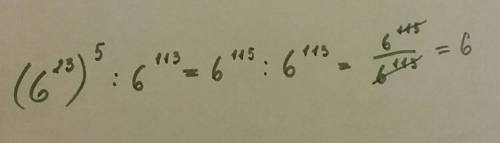 (6²³)⁵ : 6¹¹³ = 6¹¹⁵ : 6¹¹³ = 6¹¹⁵/6¹¹³ = 6